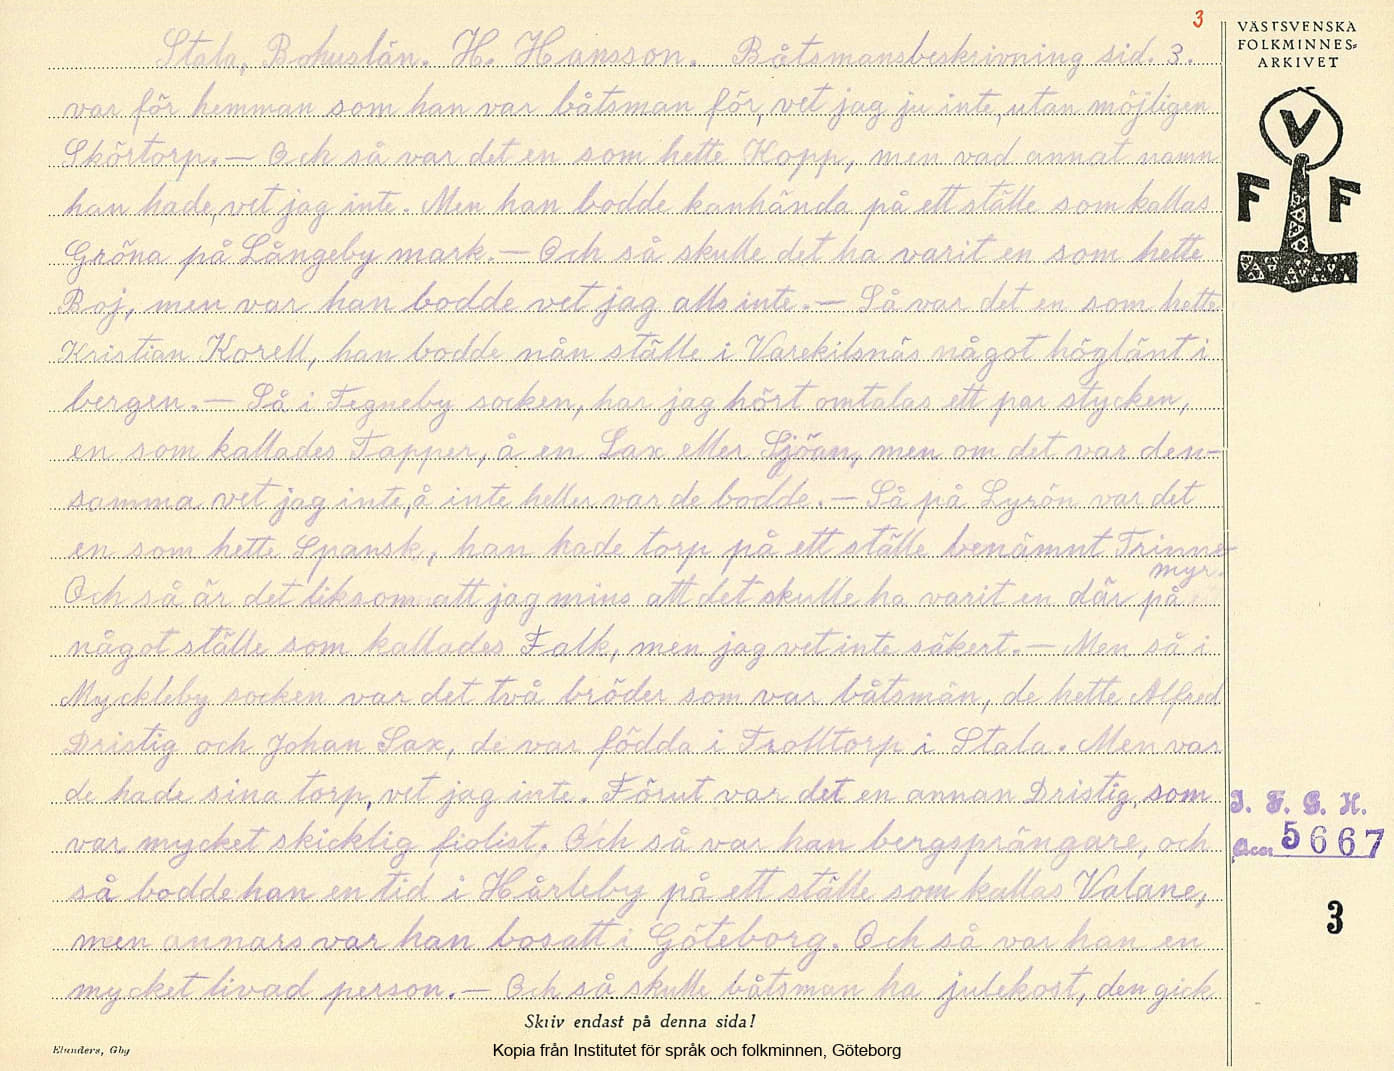 3
Stala, Bohuslän. H. Hansson. Båtsmansbeskrivning sid. 3.
var för hemman som han var båtsman för, vet jag ju inte, utan möjligen
Skörtorp. — Och så var det en som hette Kopp, men vad annat namn
han hade, vet jag inte. Men han bodde kanhända på ett ställe som kallas
Gröna på Långeby mark. — Och så skulle det ha varit en som hette
Boj, men var han bodde vet jag alls inte. — Så var det en som hette
Kristian Korell, han bodde nån ställe i Varekilsnäs något höglänt i
bergen. — Så i Tegneby socken, har jag hört omtalas ett par stycken,
en som kallades Tapper, å en Sax eller Sjöan, men om det var den-
samma vet jag inte, å inte heller var de bodde. — Så på Lyrön var det
en som hette Spansk, han hade torp på ett ställe benämnt Trinne-
myr.
Och så är det liksom att jag mins att det skulle ha varit en där på
något ställe som kallades Falk, men jag vet inte säkert. — Men så i
Myckleby socken var det två bröder som var båtsmän, de hette Alfred
Dristig och Johan Sax, de var födda i Trolltorp i Stala. Men var
de hade sina torp, vet jag inte. Förut var det en annan Dristig, som
var mycket skicklig fiolist. Och så var han bergsprängare, och
så bodde han en tid i Hårleby på ett ställe som kallas Valane,
men annars var han bosatt i Göteborg. Och så var han en
mycket livad person. — Och så skulle båtsman ha julekost, den gick
Skriv endast på denna sida!
Elanders, Gbg
Kopia från Institutet för språk och folkminnen, Göteborg
VÄSTSVENSKA
FOLKMINNES-
ARKIVET
V
F F
I. F. G. H.
Acc. 5667
3